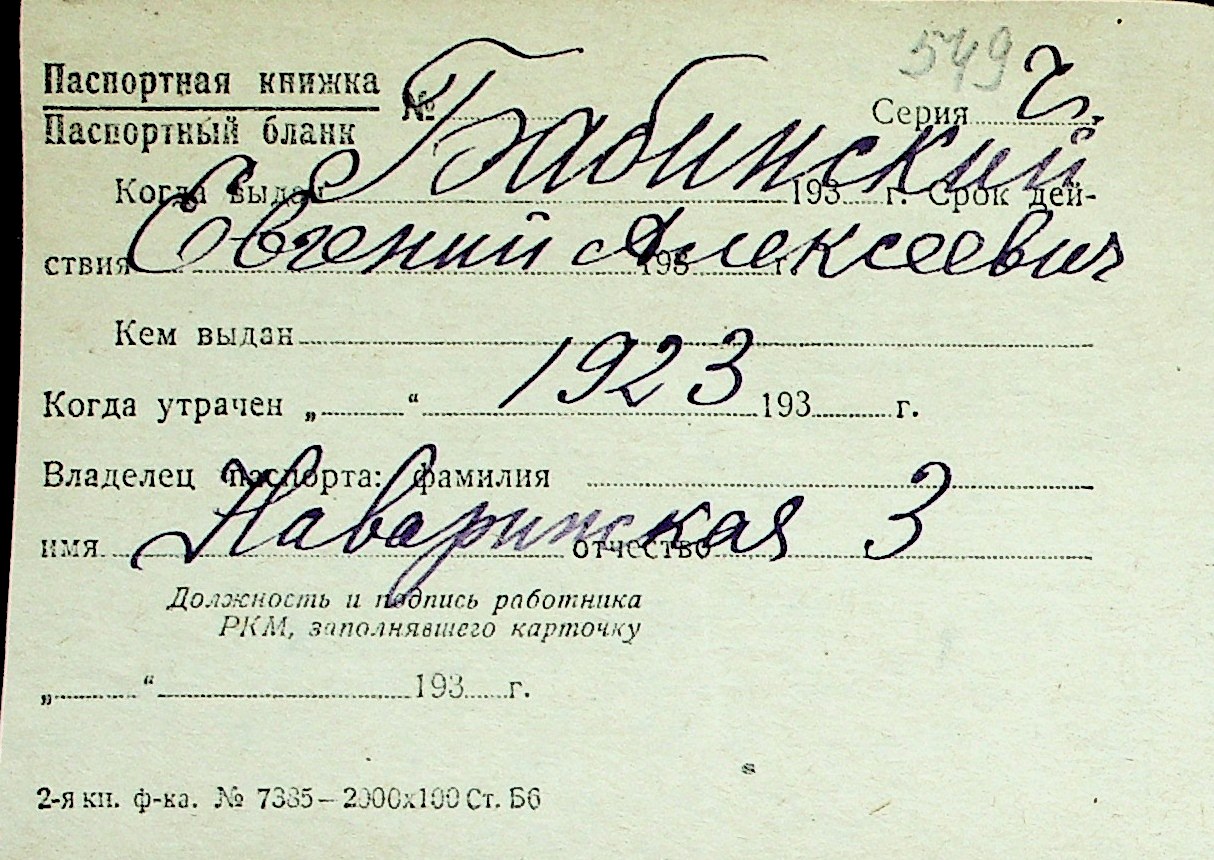 549
Паспортная книжка
Паспортный бланк
№ Серия
Бабинский
Когда выдан 193 г. Срок дей-
Евгений Алексеевич
ствия 193 г.
Кем выдан
1923
Когда утрачен „ “ 193 г.
Владелец паспорта: фамилия
Наваринская 3
имя отчество
Должность и подпись работника
РКМ, заполнявшего карточку
„ “ 193 г.
2-я кн. ф-ка. № 7385—2000х100 Ст. Б6